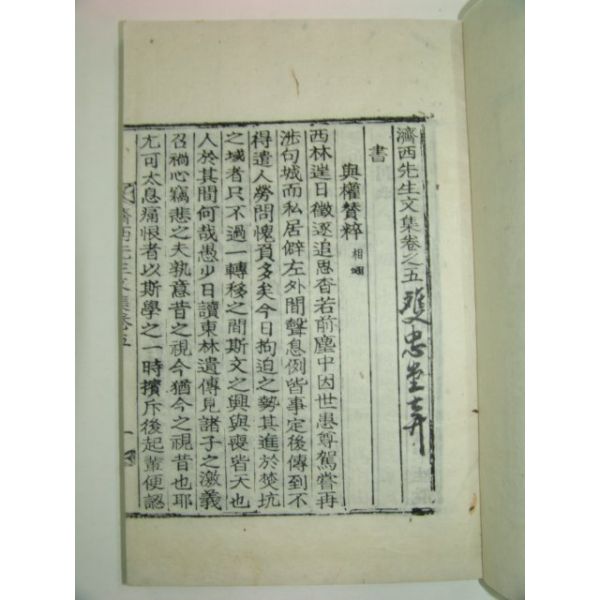 濟西先生文集卷之五 雙忠堂弆
書
與權贊粹 相
西林逹日徵逐追思杳若前塵中因世愚尊駕嘗再
涖句城而私居僻左外閒聲息例皆事定後傳到不
得遣人勞問愧負多矣今日拘迫之勢其進於焚坑
之域者只不過一轉移之間斯文之興與喪皆天也
人於其間何哉愚少日讀東林遺傳見諸子之激義
召禍心竊悲之夫孰意昔之視今猶今之視昔也耶
尤可太息痛恨者以斯學之一時擯斥後起輩便認
濟西先生文集卷五 一